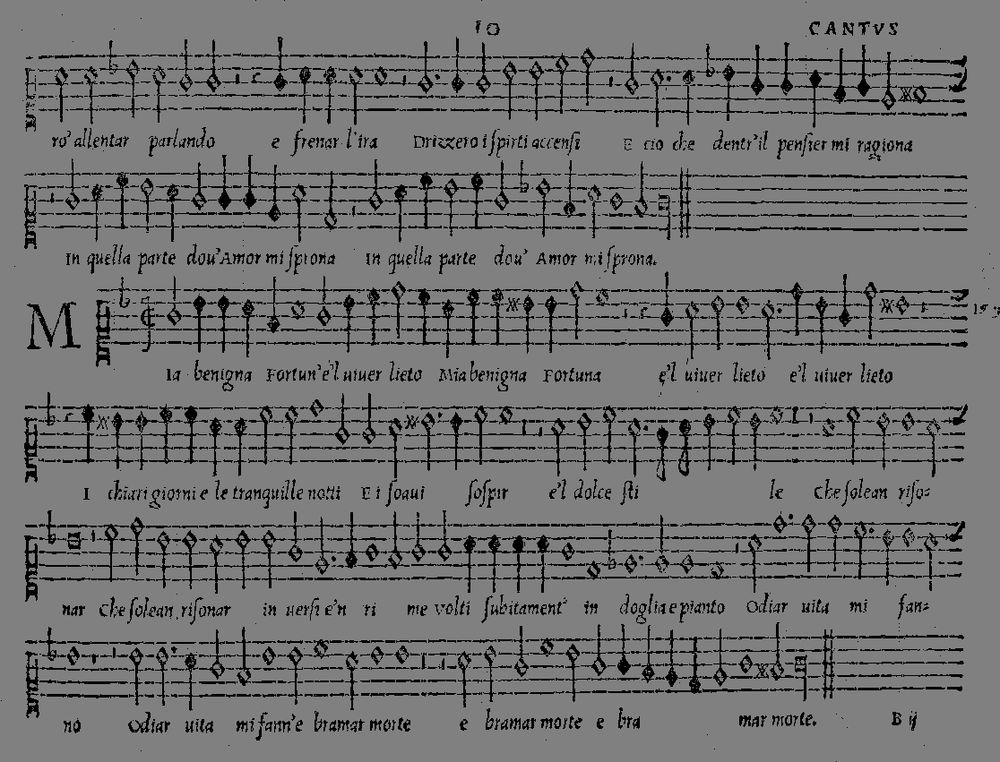 10 CANTVS
ro' allentar parlando e frenar l'ira Drizzero i spirti accensi E cio che dentr'il pensier mi ragiona
In quella parte dou'Amor mi sprona In quella parte dou' Amor mi sprona.
M
Ia benigna Fortun'e'l uiuer lieto Mia benigna Fortuna e'l uiuer lieto e'l uiuer lieto
I chiari giorni e le tranquille notti E i soaui sospir e'l dolce sti le Che solean riso=
nar Che solean risonar in uersi e'n ri me volti subitament' in doglia e pianto Odiar uita mi fan=
no Odiar uita mi fann'e bramar morte e bramar morte e bra mar morte. B ij